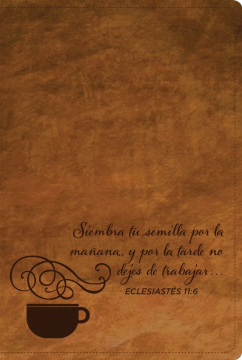 Siembra tu semilla por la
mañana, y por la tarde no
dejes de trabajar...
ECLESIASTÉS 11:6